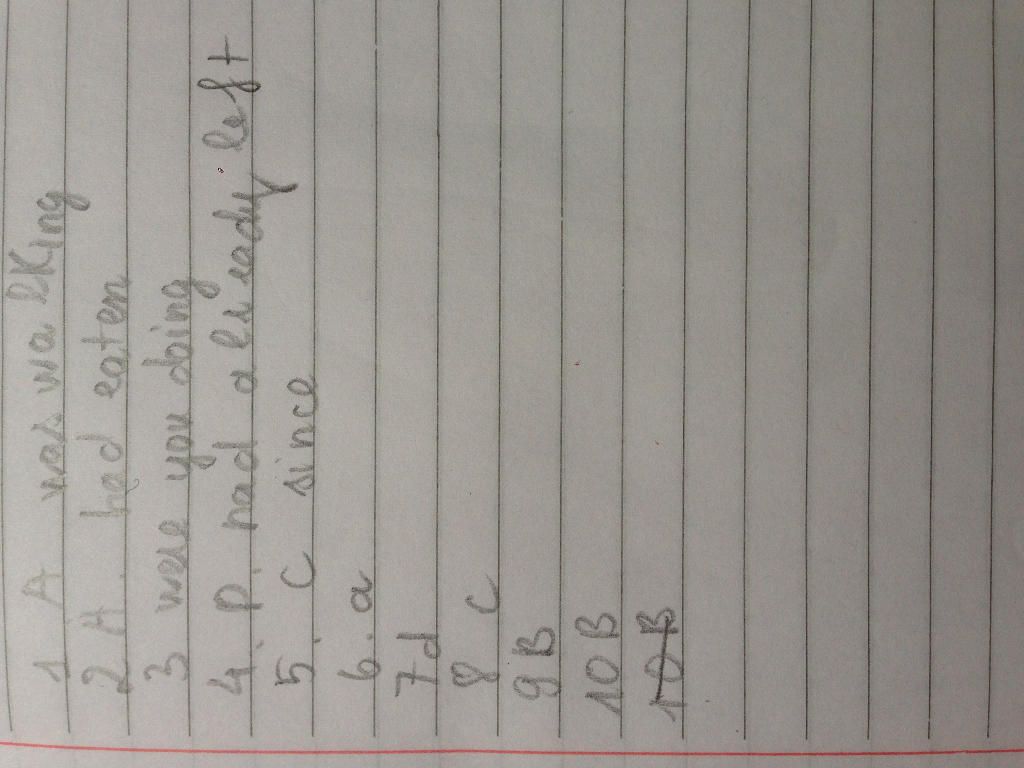 1 A was walking
2 A. had eaten
3 were you doing
4. D. had already left
5. C since
6. a
7 d
8 C
9 B
10 B
10 B